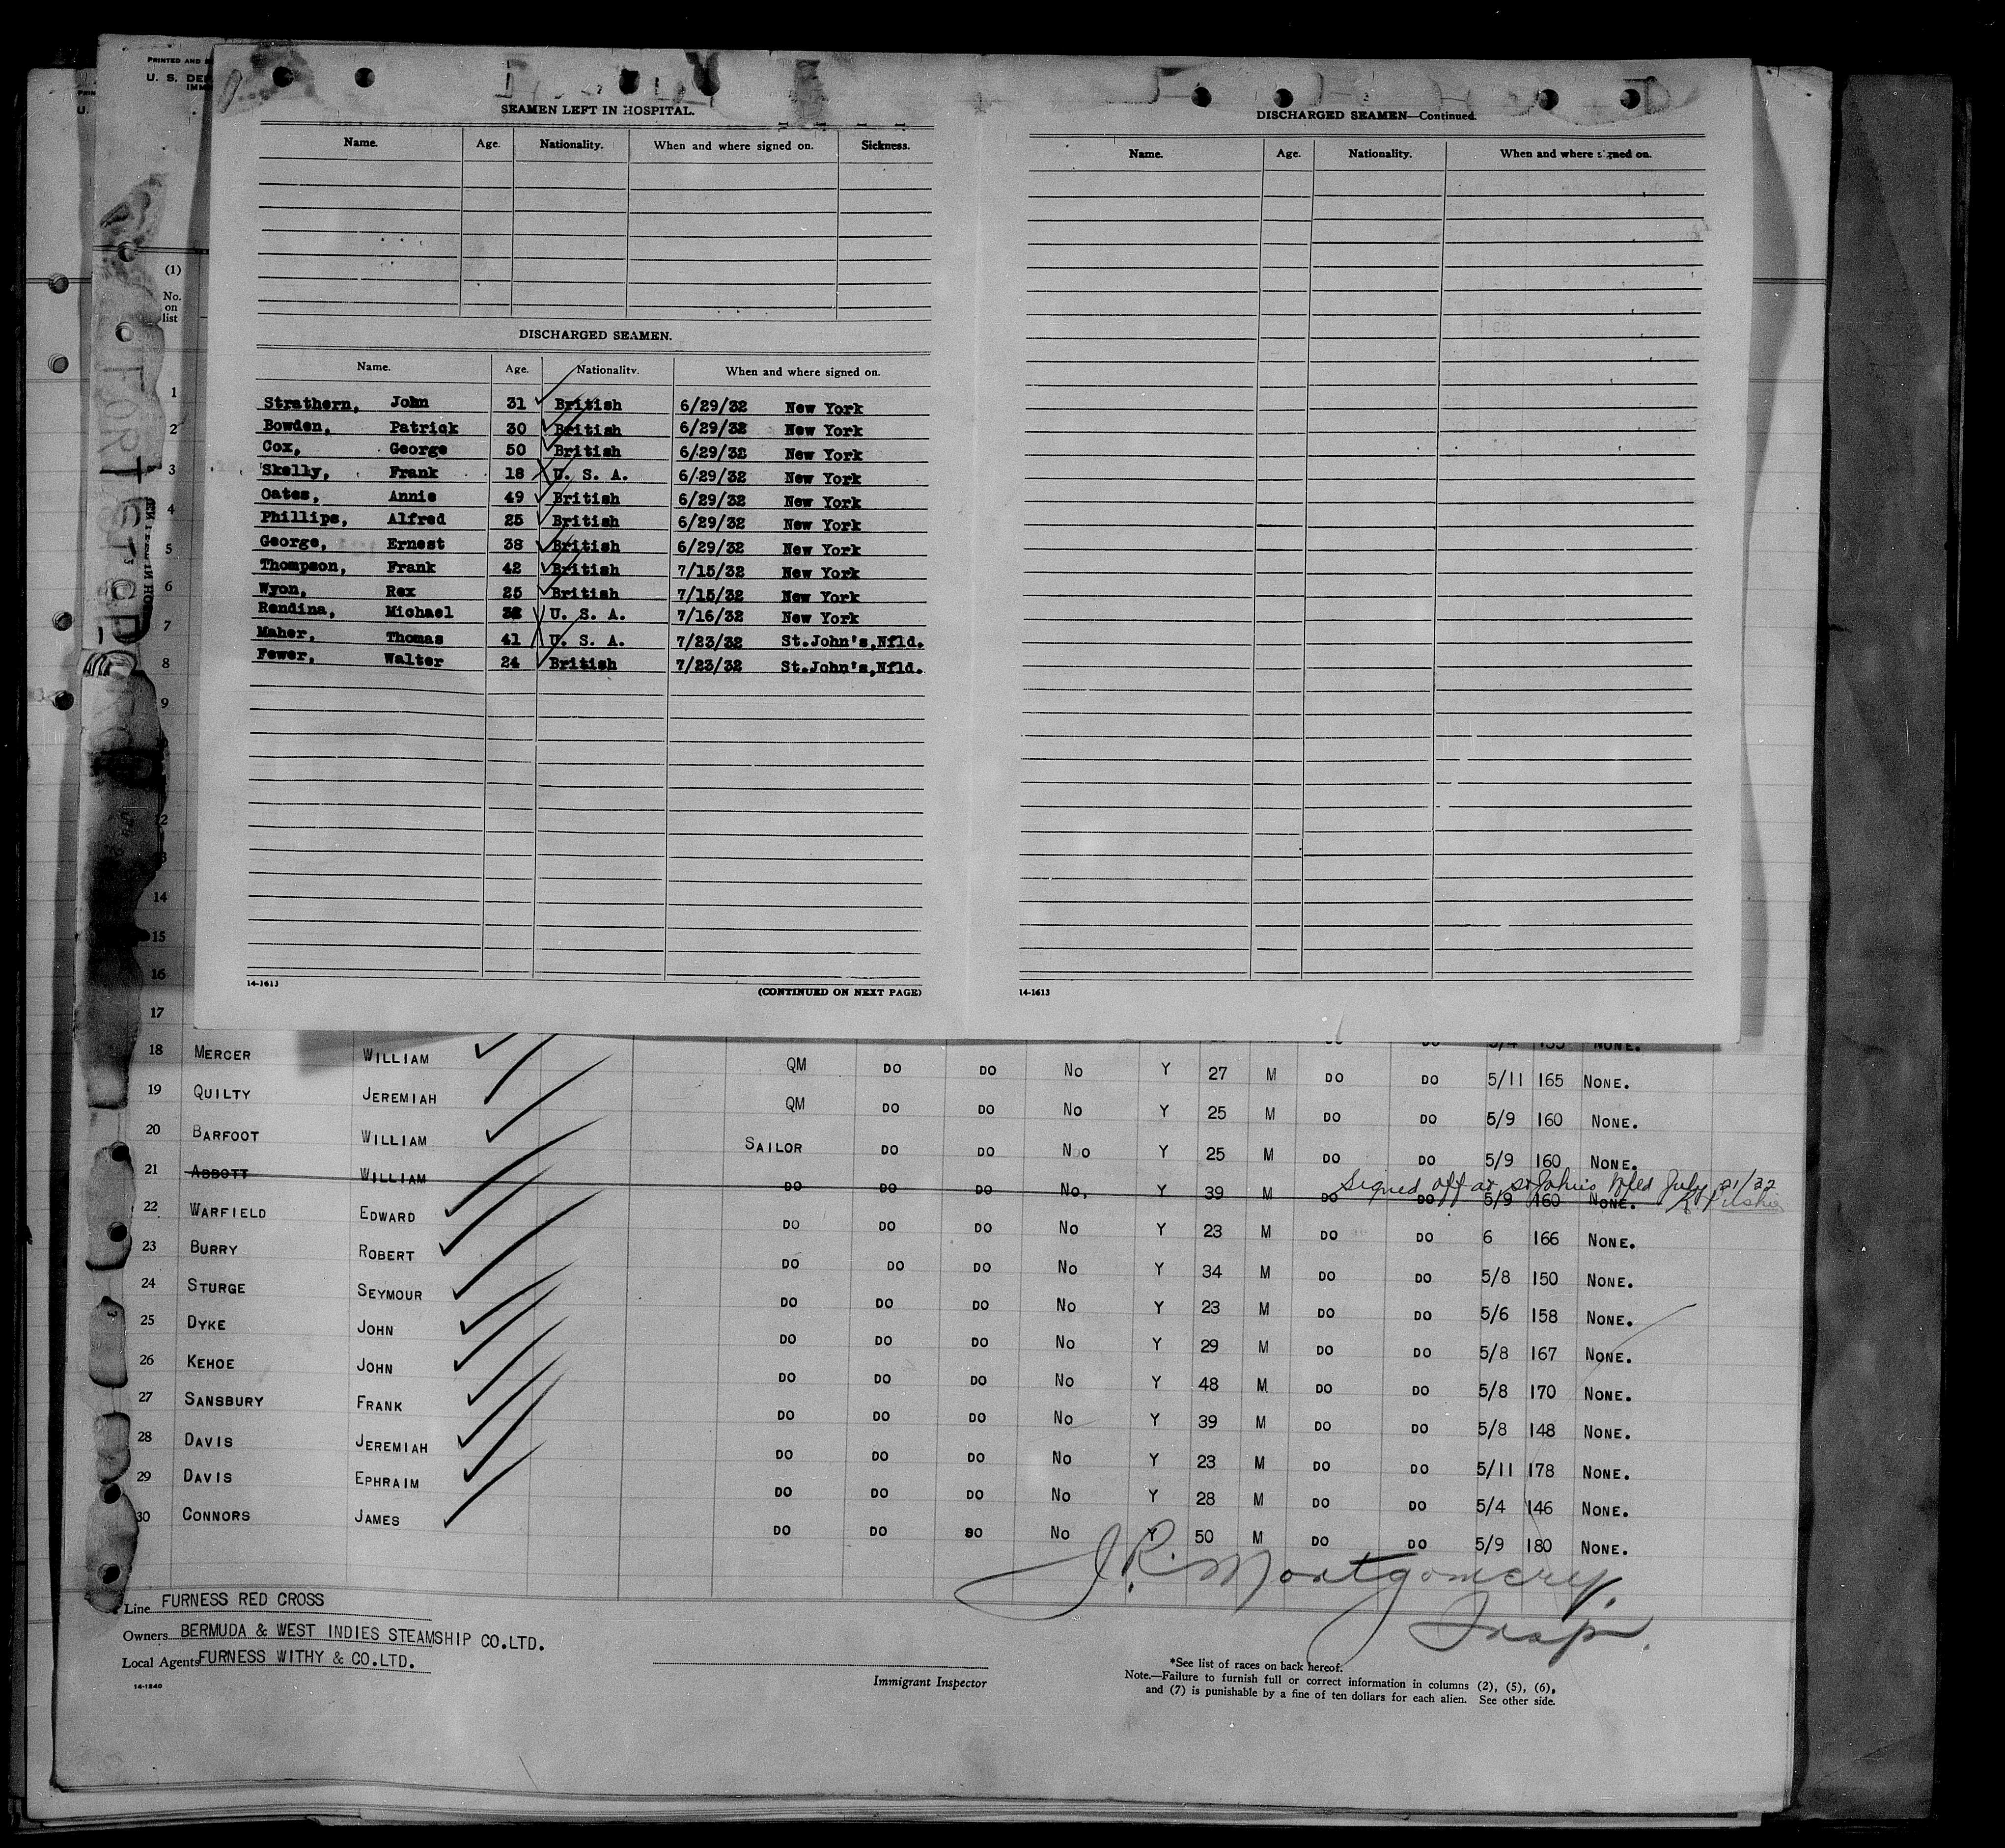 PRINTED AND
U. S. DE
IMM
PRIN
U.
SEAMEN LEFT IN HOSPITAL.
Name. Age. Nationality. When and where signed on. Sickness.
DISCHARGED SEAMEN.
Name. Age. Nationality. When and where signed on.
Strathern, John 31 British 6/29/32 New York
Bowden, Patrick 30 British 6/29/32 New York
Cox, George 50 British 6/29/32 New York
Skelly, Frank 18 U. S. A. 6/29/32 New York
Oates, Annie 49 British 6/29/32 New York
Phillips, Alfred 25 British 6/29/32 New York
George, Ernest 38 British 6/29/32 New York
Thompson, Frank 42 British 7/15/32 New York
Wyon, Rex 25 British 7/15/32 New York
Rendina, Michael U. S. A. 7/16/32 New York
Maher, Thomas 41 U. S. A. 7/23/32 St.John's,Nfld.
Fewer, Walter 24 British 7/23/32 St.John's,Nfld.
14-1613
(CONTINUED ON NEXT PAGE)
DISCHARGED SEAMEN—Continued.
Name. Age. Nationality. When and where signed on.
14-1613
(1)
No. on list
1
2
3
4
5
6
7
8
9
14
15
16
17
18 MERCER WILLIAM QM DO DO No Y 27 M DO DO 5/11 165 NONE.
19 QUILTY JEREMIAH QM DO DO No Y 25 M DO DO 5/9 160 NONE.
20 BARFOOT WILLIAM SAILOR DO DO No Y 25 M DO DO 5/9 160 NONE.
21 ABBOTT WILLIAM DO DO DO No. Y 39 M DO DO 5/9 160 NONE.
Signed off at St John's Nfld July 21/32
22 WARFIELD EDWARD DO DO DO No Y 23 M DO DO 6 166 NONE.
23 BURRY ROBERT DO DO DO No Y 34 M DO DO 5/8 150 NONE.
24 STURGE SEYMOUR DO DO DO No Y 23 M DO DO 5/6 158 NONE.
25 DYKE JOHN DO DO DO No Y 29 M DO DO 5/8 167 NONE.
26 KEHOE JOHN DO DO DO No Y 48 M DO DO 5/8 170 NONE.
27 SANSBURY FRANK DO DO DO No Y 39 M DO DO 5/8 148 NONE.
28 DAVIS JEREMIAH DO DO DO No Y 23 M DO DO 5/11 178 NONE.
29 DAVIS EPHRAIM DO DO DO No Y 28 M DO DO 5/4 146 NONE.
30 CONNORS JAMES DO DO DO No Y 50 M DO DO 5/9 180 NONE.
J.R. Montgomery.
Insp
Line FURNESS RED CROSS
Owners BERMUDA & WEST INDIES STEAMSHIP CO.LTD.
Local Agents FURNESS WITHY & CO.LTD.
14-1240
Immigrant Inspector
*See list of races on back hereof.
Note.—Failure to furnish full or correct information in columns (2), (5), (6),
and (7) is punishable by a fine of ten dollars for each alien. See other side.